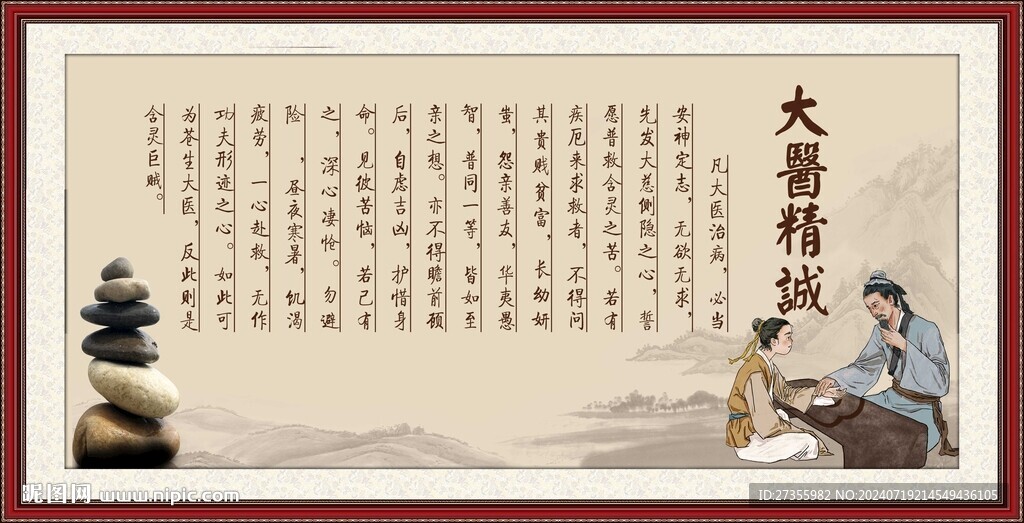 大醫精誠
凡大医治病，必当
安神定志，无欲无求，
先发大慈侧隐之心，誓
愿普救含灵之苦。若有
疾厄来求救者，不得问
其贵贱贫富，长幼妍
蚩，怨亲善友，华夷愚
智，普同一等，皆如至
亲之想。亦不得瞻前顾
后，自虑吉凶，护惜身
命。见彼苦恼，若己有
之，深心凄怆。勿避
险 ，昼夜寒暑，饥渴
疲劳，一心赴救，无作
功夫形迹之心。如此可
为苍生大医，反此则是
含灵巨贼。
昵图网 www.nipic.com
ID:27355982 NO:20240719214549436105